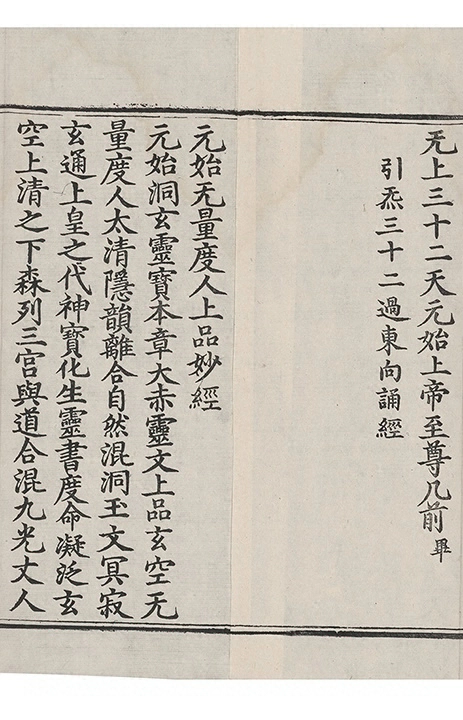 无上三十二天元始上帝至尊几前畢
引炁三十二過東向誦經
元始无量度人上品妙經
元始洞玄靈寶本章大赤靈文上品玄空无
量度人太清隱韻離合自然混洞玉文冥寂
玄通上皇之代神寶化生靈書度命凝泛玄
空上清之下森列三宫與道合混九光丈人